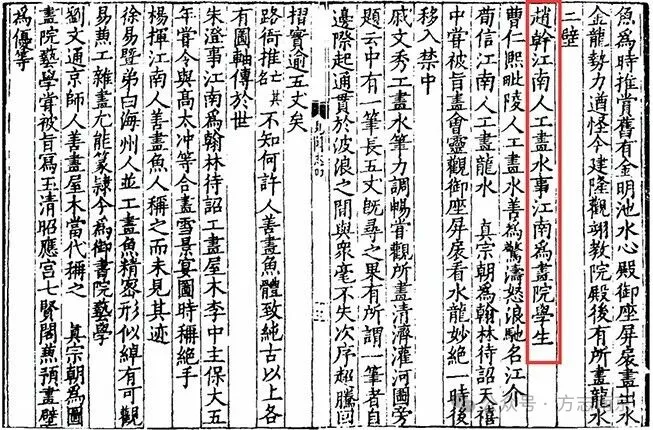 魚爲時推賞舊有金明池水心殿御座屏扆畫出水
金龍勢力遒怪今建隆觀翊教院殿後有所畫龍水
二壁
趙幹江南人工畫水事江南爲畫院學生
曹仁熙毗陵人工畫水善爲驚濤怒浪馳名江介
荀信江南人工畫龍水 真宗朝爲翰林待詔天禧
中嘗被旨畫會靈觀御座屏扆看水龍妙絶一時後
移入禁中
戚文秀工畫水筆力調暢嘗觀所畫清濟灌河圖旁
題云中有一筆長五丈旣尋之果有所謂一筆者自
邊際起通貫於波浪之間與衆毫不失次序超騰回
摺實逾五丈矣
路衙推名亡其不知何許人善畫魚體致純古以上各
有圖軸傳於世
朱澄事江南爲翰林待詔工畫屋木李中主保大五
年嘗令與高太冲等合畫雪景宴圖時稱絶手
楊揮江南人善畫魚人稱之而未見其迹
徐易暨弟白海州人並工畫魚精密形似綽有可觀
易兼工雜畫尤能篆隷今爲御書院藝學
劉文通京師人善畫屋木當代稱之 真宗朝爲圖
畫院藝學嘗被旨寫玉清昭應宮七賢閣兼預畫壁
爲優等
公众号·方志